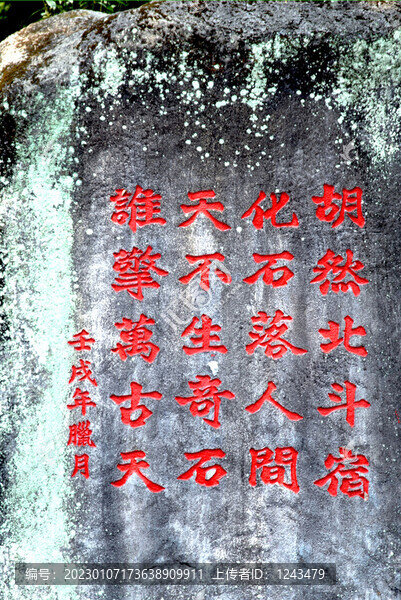 胡然北斗宿
化石落人間
天不生奇石
誰擎萬古天
壬戌年臘月
编号:20230107173638909911 上传者ID:1243479